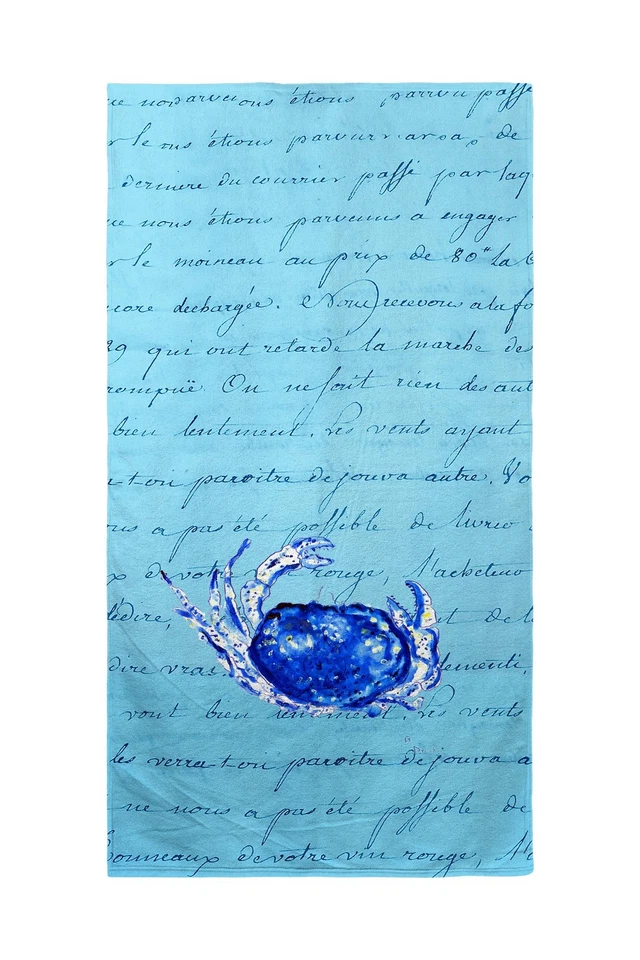 ue nous étions parvenu passé
r le nous étions de
derniere du courrier passé par laq
ue nous étions parvenus a engager
r le moineau au prix de 80" La
core dechargée. Nous recevons a la fo
29 qui ont retardé la marche de
rompuë. On ne fait rien des aut
bien lentement. Les vents ayant
t-on paroitre de jour a autre. Vo
us a pas été possible de livrer
x de votre rouge, l'acheteur
dédire, t de l
dire vrai lementi.
vont bien lentement. Les vents
les verra-t-on paroitre de jour a a
ne nous a pas été possible de
Tonneaux de votre vin rouge, l'a